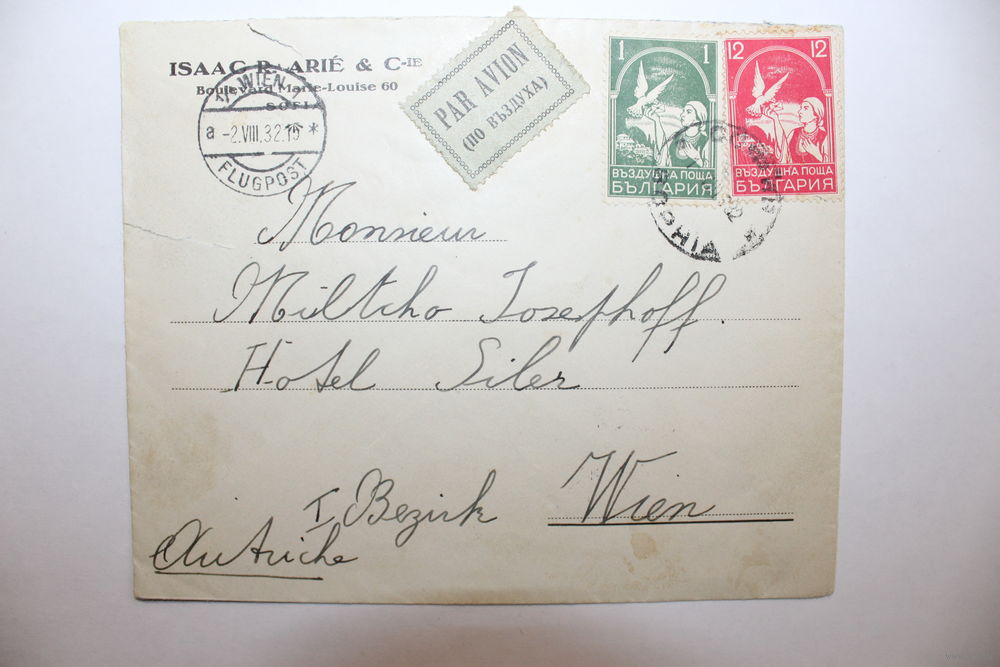 ISAAC R. ARIÉ & C-IE
Boulevard Marie-Louise 60
SOFIA
1/1 WIEN
a -2.VIII.32.15 *
FLUGPOST
PAR AVION
(ПО ВЪЗДУХА)
1 1
ВЪЗДУШНА ПОЩА
БЪЛГАРИЯ
12 12
ВЪЗДУШНА ПОЩА
БЪЛГАРИЯ
Monsieur
Miltcho Josephoff.
Hotel Siler
I. Bezirk Wien
Autriche